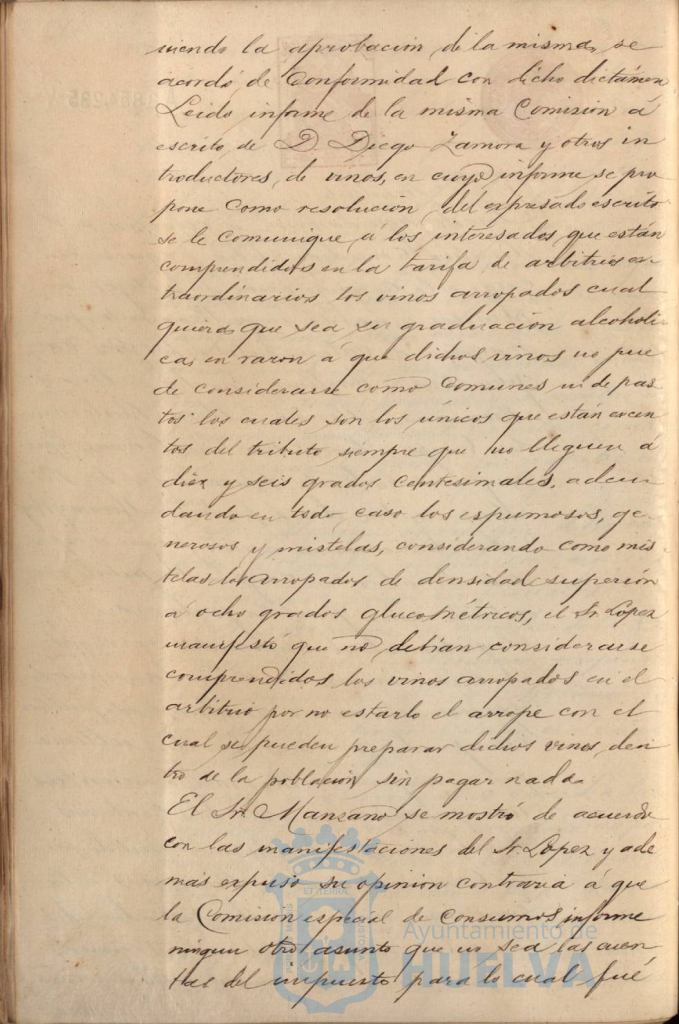 niendo la aprobacion de la misma, se
acordó de conformidad con dicho dictámen
Leido informe de la misma Comision á
escrito de D. Diego Zamora y otros in
troductores de vinos, en cuyo informe se pro
pone como resolucion del expresado escrito
se le comunique á los interesados, que están
comprendidos en la tarifa de arbitrios ex
traordinarios los vinos arropados cual
quiera que sea su graduacion alcoholi
ca, en razon á que dichos vinos no pue
de considerarse como comunes ni de pas
tos los cuales son los únicos que están exen
tos del tributo siempre que no lleguen á
diez y seis grados centesimales, adeu
dando en todo caso los espumosos, ge
nerosos y mistelas, considerando como mis
telas los arropados de densidad superior
á ocho grados glucométricos, el Sr. Lopez
manifestó que no debian considerarse
comprendidos los vinos arropados en el
arbitrio por no estarlo el arrope con el
cual se pueden preparar dichos vinos den
tro de la poblacion sin pagar nada.
El Sr. Manzano se mostró de acuerdo
con las manifestaciones del Sr. Lopez y ade
mas expuso su opinion contraria á que
la Comision especial de Consumos informe
ningun otro asunto que no sea las cuen
tas del impuesto para lo cual fué
Ayuntamiento de
HUELVA